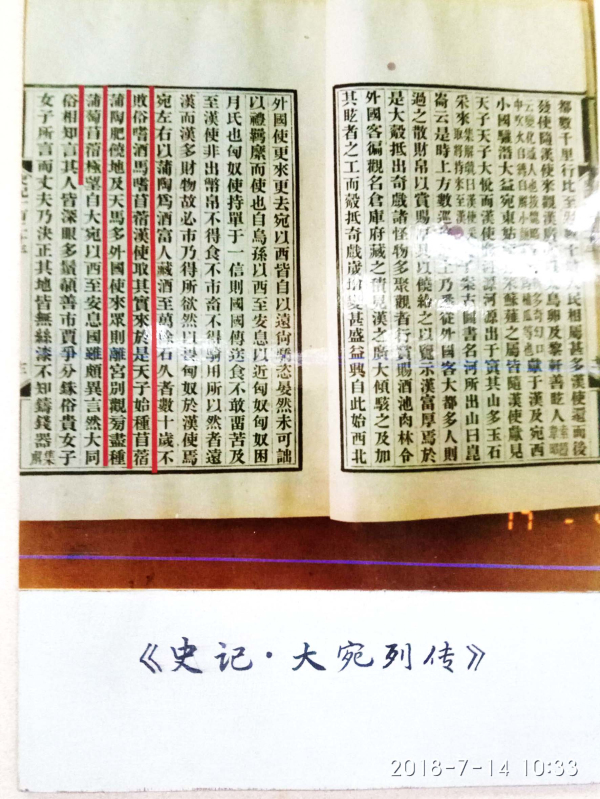 都數千里行比至民相屬甚多漢使還而後
發使隨漢使來觀漢鳥卵及黎軒善眩人
獻于漢及宛西
小國驩潛大益宛東姑蘇薤之屬皆隨漢使獻見
天子天子大悅而漢使河源出于窴其山多玉石
采來案古圖書名河所出山曰崑
崙云是時上方數巡上乃悉從外國客大都多人則
過之散財帛以賞賜厚具以饒給之以覽示漢富厚焉於
是大觳抵出奇戲諸怪物多聚觀者行賞賜酒池肉林令
外國客徧觀名倉庫府藏之積見漢之廣大傾駭之及加
其眩者之工而觳抵奇戲歲增變甚盛益興自此始西北
外國使更來更去宛以西皆自以遠尚驕恣晏然未可詘
以禮羈縻而使也自烏孫以西至安息以近匈奴匈奴困
月氏也匈奴使持單于一信則國國傳送食不敢畱苦及
至漢使非出幣帛不得食不市畜不得騎用所以然者遠
漢而漢多財物故必市乃得所欲然以匈奴於漢使焉
宛左右以蒲陶爲酒富人藏酒至萬餘石久者數十歲不
敗俗嗜酒馬嗜苜蓿漢使取其實來於是天子始種苜蓿
蒲陶肥饒地及天馬多外國使來眾則離宮別觀旁盡種
蒲萄苜蓿極望自大宛以西至安息國雖頗異言然大同
俗相知言其人皆深眼多鬚髯善市賈爭分銖俗貴女子
女子所言而丈夫乃決正其地皆無絲漆不知鑄錢器集解
《史记·大宛列传》
2018-7-14 10:33